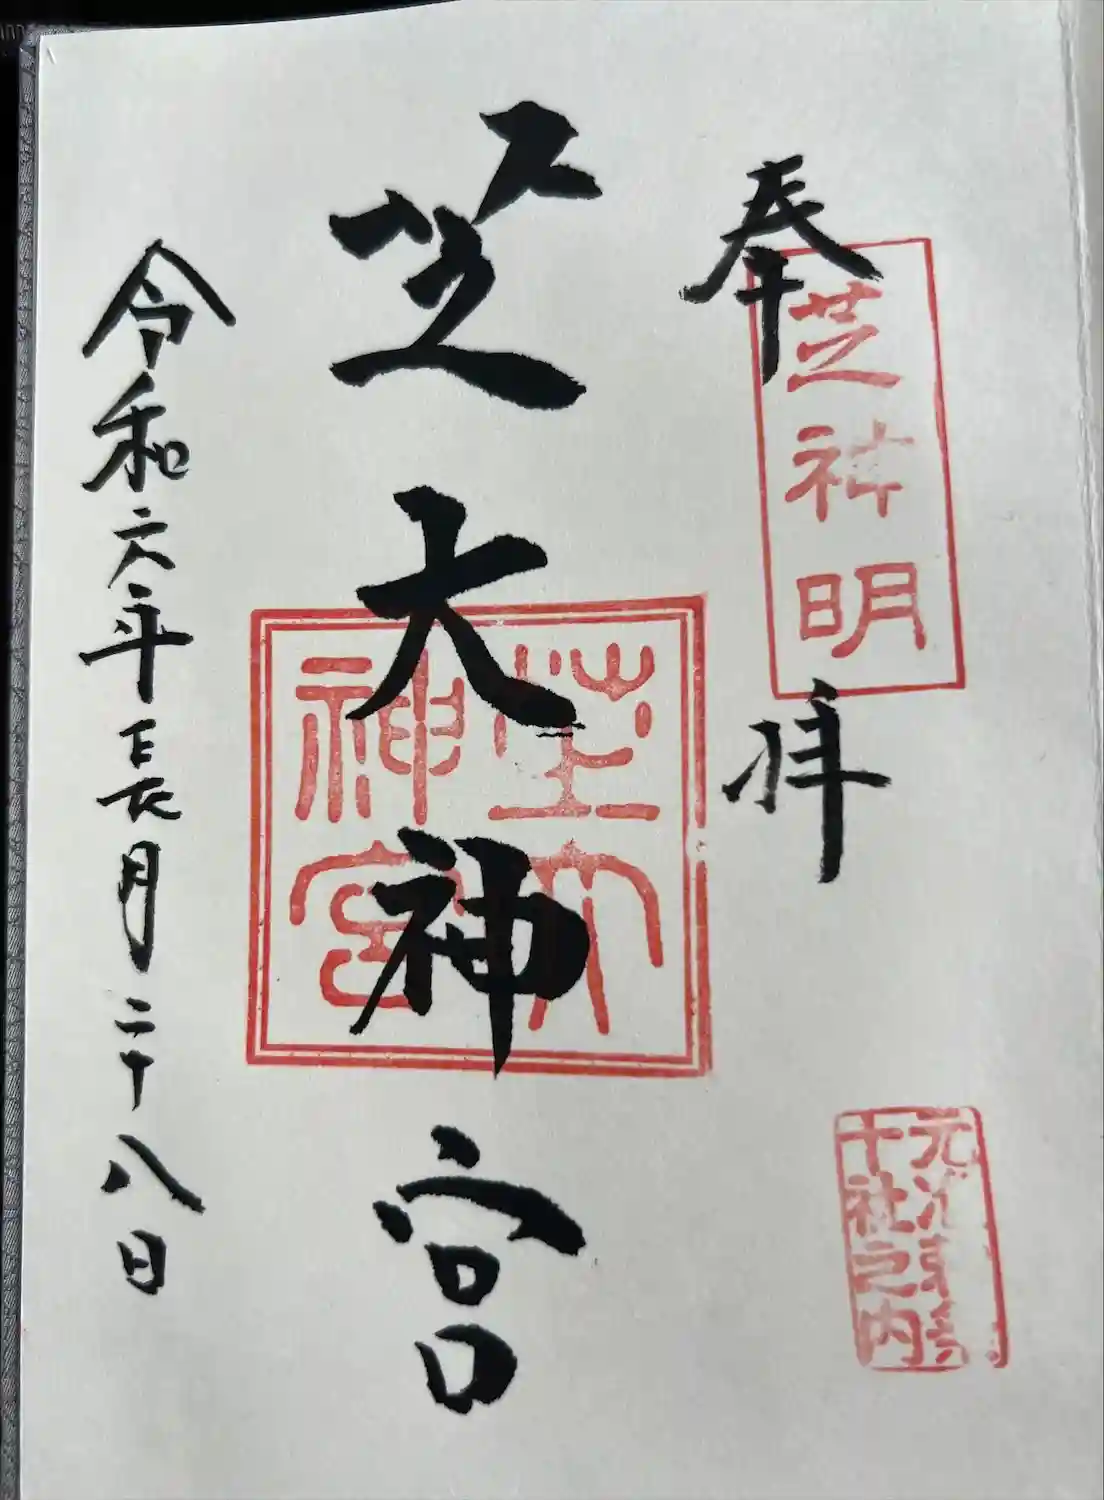 奉拝
芝神明
元准勅
十社之内
芝大神宮
芝大
神宮
令和六年長月二十八日